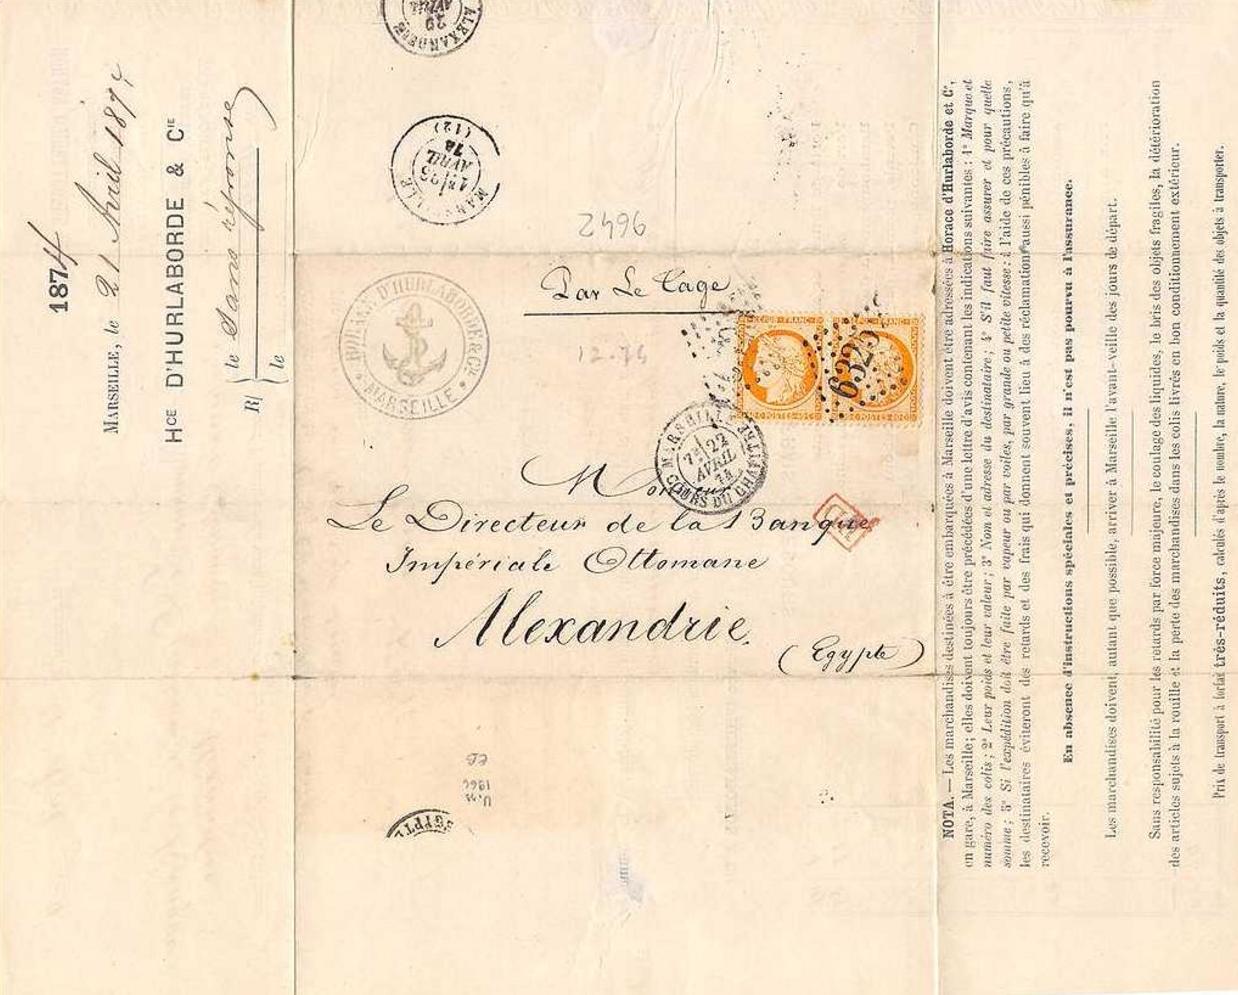 1874
MARSEILLE, le 21 Avril 1874
Hce D'HURLABORDE & Cie
R/ { le Sans réponse
le
ALEXANDRIE
29
AVRIL
MARSEILLE
25
AVRIL
74
(12)
2496
Par Le Tage
HORACE D'HURLABORDE & CIE
* MARSEILLE *
12.74
REPUB · FRANC
POSTES
6325
MARSEILLE
22
AVRIL
74
COURS DU CHAPITRE
PD
Monsieur
Le Directeur de la Banque
Impériale Ottomane
Alexandrie,
(Egypte)
EGYPTE
NOTA. — Les marchandises destinées à être embarquées à Marseille doivent être adressées à Horace d'Hurlaborde et Ce,
en gare, à Marseille; elles doivent toujours être précédées d'une lettre d'avis contenant les indications suivantes : 1° Marque et
numéro des colis; 2° Leur poids et leur valeur; 3° Nom et adresse du destinataire; 4° S'il faut faire assurer et pour quelle
somme; 5° Si l'expédition doit être faite par vapeur ou par voiles, par grande ou petite vitesse: à l'aide de ces précautions,
les destinataires éviteront des retards et des frais qui donnent souvent lieu à des réclamations aussi pénibles à faire qu'à
recevoir.
En absence d'instructions spéciales et précises, il n'est pas pourvu à l'assurance.
Les marchandises doivent, autant que possible, arriver à Marseille l'avant-veille des jours de départ.
Sans responsabilité pour les retards par force majeure, le coulage des liquides, le bris des objets fragiles, la détérioration
des articles sujets à la rouille et la perte des marchandises dans les colis livrés en bon conditionnement extérieur.
Prix de transport à forfait très-réduits, calculés d'après le nombre, la nature, le poids et la quantité des objets à transporter.